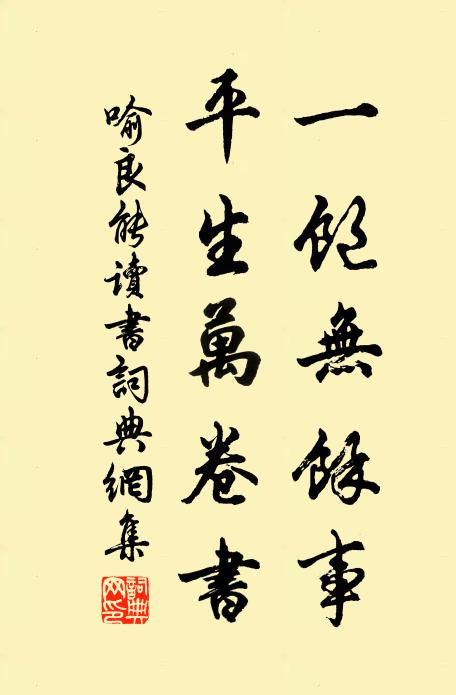 一飽無餘事
平生萬卷書
喻良能讀書詞典網集
詞典網印